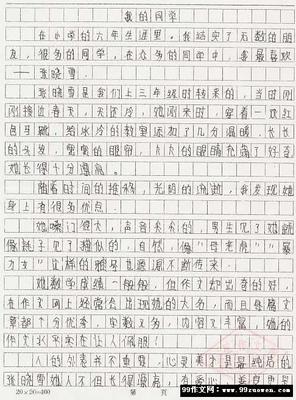 我的同学
在小学的六年生涯里，我结交了无数的朋
友，很多的同学，在众多的同学中，我最喜欢
——张晓雪。
张晓雪是我们上三年级时转来的，当时刚
刚接近春天，天还冷，她刚来时，穿着一次红
色马靴，给冰冷的教室添加了几分温暖。长长
的头发，弯弯的眼帘，大大的眼睛充满了好奇
她长得十分漂亮。
随着时间的推移，光阴的流逝，我发现她
身上有很多优点：
她嗓门很大，声音尖尖的，男生见了她就
像耗子见了猫似的，自然，像“母老虎”“暴
力女”这样的雅号也源源不断传来。
她数学成绩一般般，但作文却出奇的好，
在作文网上经常会出现她的大名，而且每篇文
章都十分优秀，字数又多，内容又丰富，她的
作文水平实在让人佩服！
人的外表并不重要，心灵美才是最纯洁的
张晓雪她人不但长得漂亮，有爱心，
20×20=400
第 页
99作文网：www.99zuowen.com